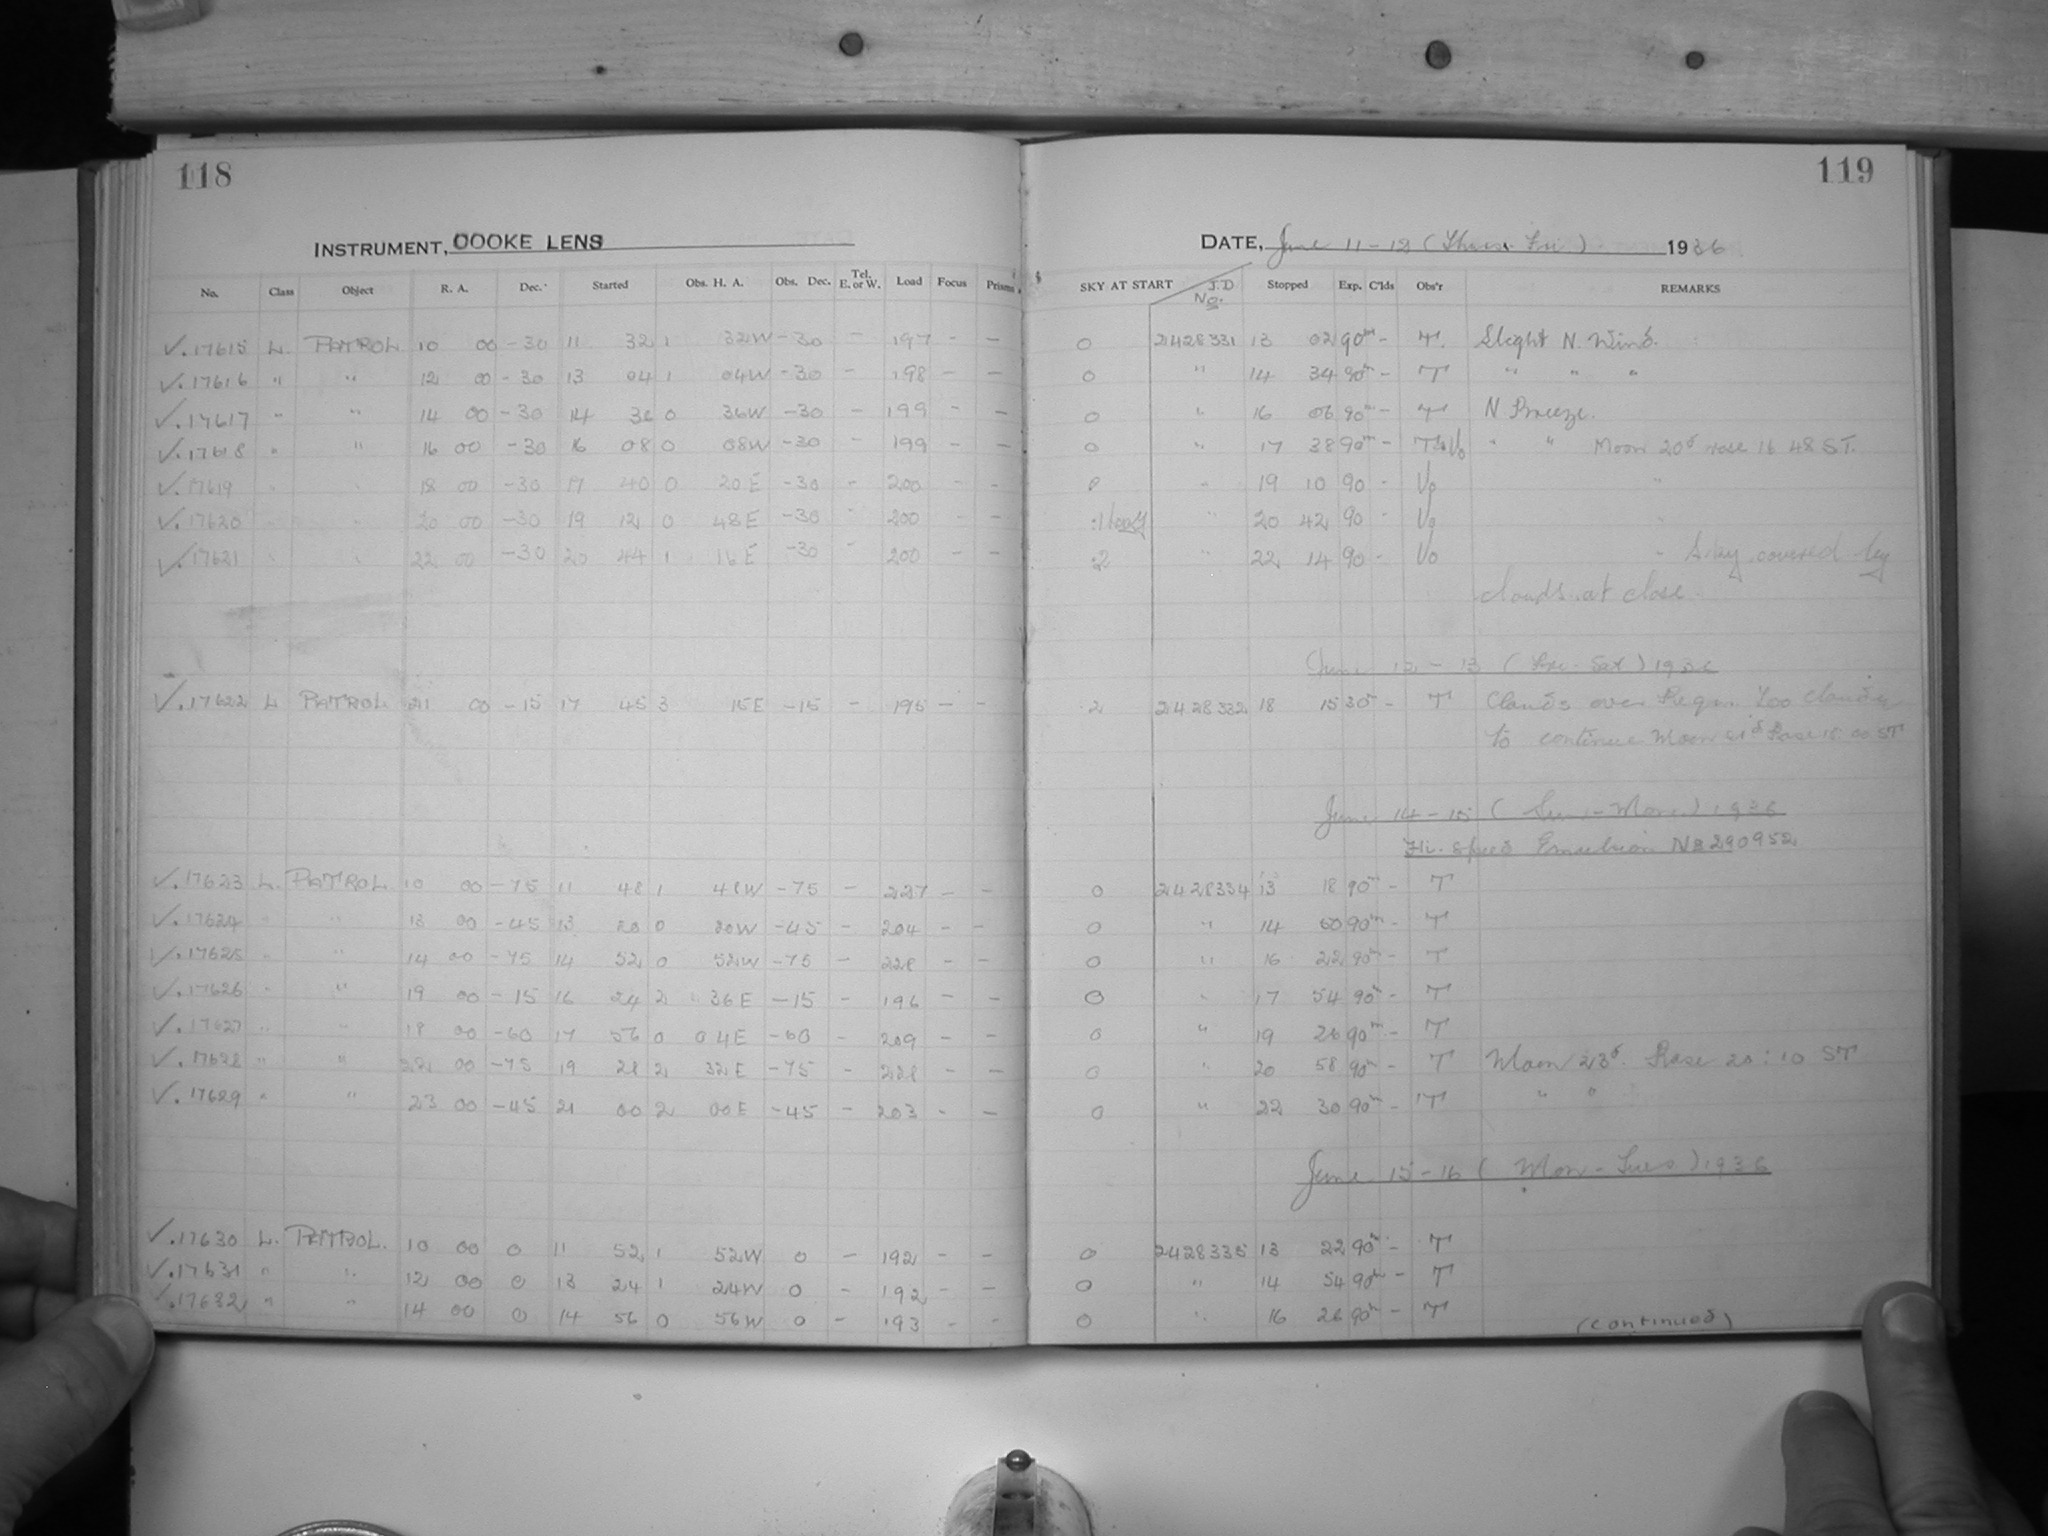 118
INSTRUMENT, COOKE LENS
No. Class Object R. A. Dec. Started Obs. H. A. Obs. Dec. Tel. E. or W. Load Focus Prisms
✓.17615 L. PATROL 10 00 -30 11 32 1 32W -30 - 197 - -
✓.17616 " " 12 00 -30 13 04 1 04W -30 - 198 - -
✓.17617 " " 14 00 -30 14 36 0 36W -30 - 199 - -
✓.17618 " " 16 00 -30 16 08 0 08W -30 - 199 - -
✓.17619 " " 18 00 -30 17 40 0 20E -30 - 200 - -
✓.17620 " " 20 00 -30 19 12 0 48E -30 - 200 - -
✓.17621 " " 22 00 -30 20 44 1 16E -30 - 200 - -
✓.17622 L PATROL 21 00 -15 17 45 3 15E -15 - 195 - -
✓.17623 L. PATROL 10 00 -75 11 48 1 48W -75 - 227 - -
✓.17624 " " 13 00 -45 13 20 0 20W -45 - 204 - -
✓.17625 " " 14 00 -75 14 52 0 52W -75 - 228 - -
✓.17626 " " 19 00 -15 16 24 2 36E -15 - 196 - -
✓.17627 " " 18 00 -60 17 56 0 04E -60 - 209 - -
✓.17628 " " 22 00 -75 19 28 2 32E -75 - 228 - -
✓.17629 " " 23 00 -45 21 00 2 00E -45 - 203 - -
✓.17630 L. PATROL. 10 00 0 11 52 1 52W 0 - 192 - -
✓.17631 " " 12 00 0 13 24 1 24W 0 - 192 - -
✓.17632 " " 14 00 0 14 56 0 56W 0 - 193 - -
119
DATE, June 11-12 (Thurs-Fri) 1936
SKY AT START J.D No. Stopped Exp. C'lds Obs'r REMARKS
0 2428331 13 02 90m - T. Slight N. Wind.
0 " 14 34 90m - T " " "
0 " 16 06 90m - T N Breeze.
0 " 17 38 90m - T&Vo " " Moon 20d rose 16 48 ST.
0 " 19 10 90 - Vo "
.1 " 20 42 90 - Vo "
.2 " 22 14 90 - Vo " Sky covered by
clouds at close.
June 12-13 (Fri-Sat) 1936
2 2428332 18 15 30m - T Clouds over Regn. Too cloudy
to continue Moon 21d Rose 18:00 ST
June 14-15 (Sun-Mon) 1936
Hi. Speed Emulsion No 290952
0 2428334 13 18 90m - T
0 " 14 50 90m - T
0 " 16 22 90m - T
0 " 17 54 90m - T
0 " 19 26 90m - T
0 " 20 58 90m - T Moon 23d. Rose 20:10 ST
0 " 22 30 90m - T " "
June 15-16 (Mon-Tues) 1936
0 2428335 13 22 90m - T
0 " 14 54 90m - T
0 " 16 26 90m - T
(continued)